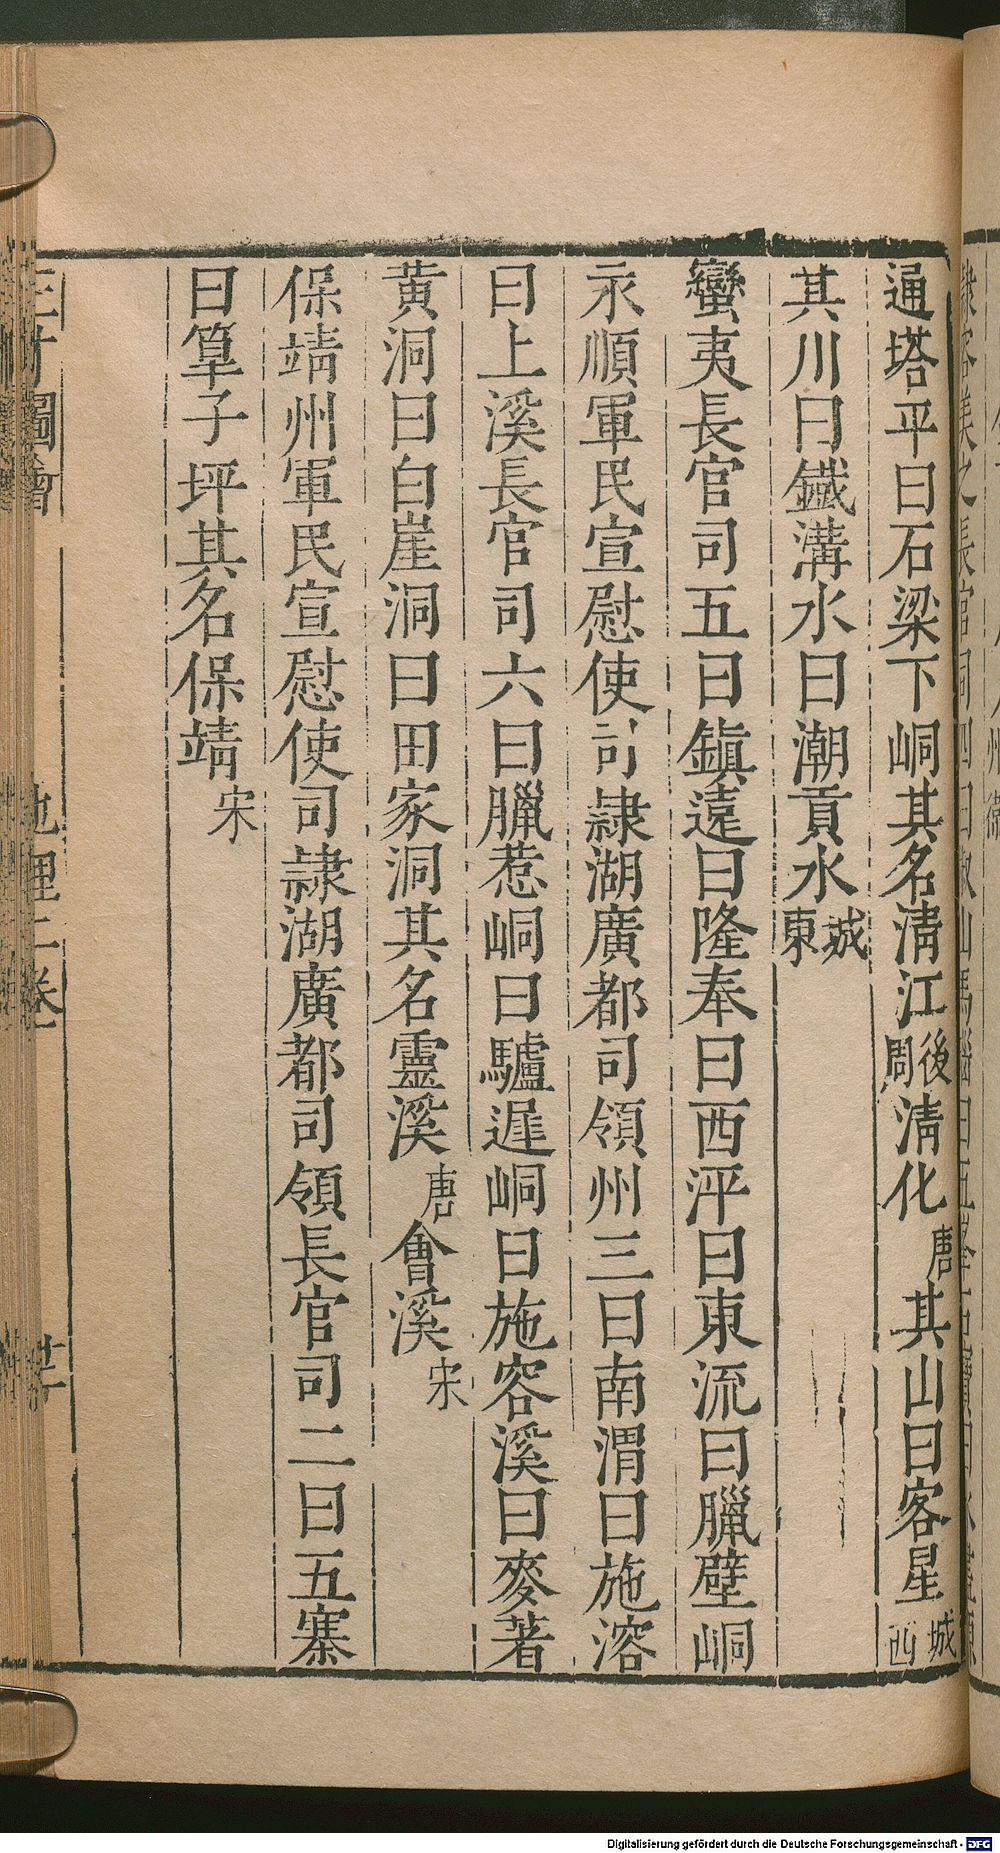 通塔平曰石梁下峒其名清江後周清化唐其山曰客星城西
其川曰鐵溝水曰潮貢水城東
蠻夷長官司五曰鎮遠曰隆奉曰西泙曰東流曰臘壁峒
永順軍民宣慰使司隷湖廣都司領州三曰南渭曰施溶
曰上溪長官司六曰臘惹峒曰驢遲峒曰施容溪曰麥著
黃洞曰白崖洞曰田家洞其名靈溪唐會溪宋
保靖州軍民宣慰使司隷湖廣都司領長官司二曰五寨
曰筸子坪其名保靖宋
三才圖會 地理二卷
Digitalisierung gefördert durch die Deutsche Forschungsgemeinschaft - DFG